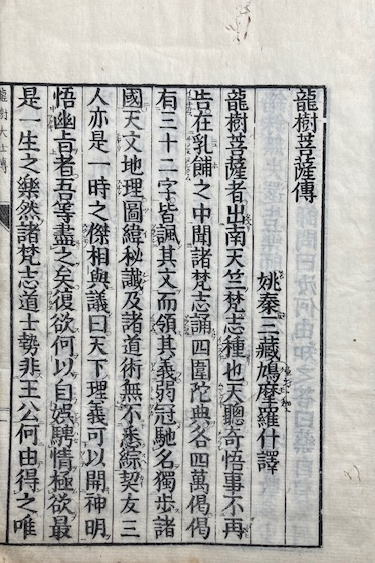 龍樹菩薩傳
姚秦三藏鳩摩羅什譯
龍樹菩薩者出南天竺梵志種也天聰奇悟事不再
告在乳餔之中聞諸梵志誦四圍陀典各四萬偈偈
有三十二字皆諷其文而領其義弱冠馳名獨步諸
國天文地理圖緯秘讖及諸道術無不悉綜契友三
人亦是一時之傑相與議曰天下理義可以開神明
悟幽旨者吾等盡之矣復欲何以自娯騁情極欲最
是一生之樂然諸梵志道士勢非王公何由得之唯
龍樹大士傳